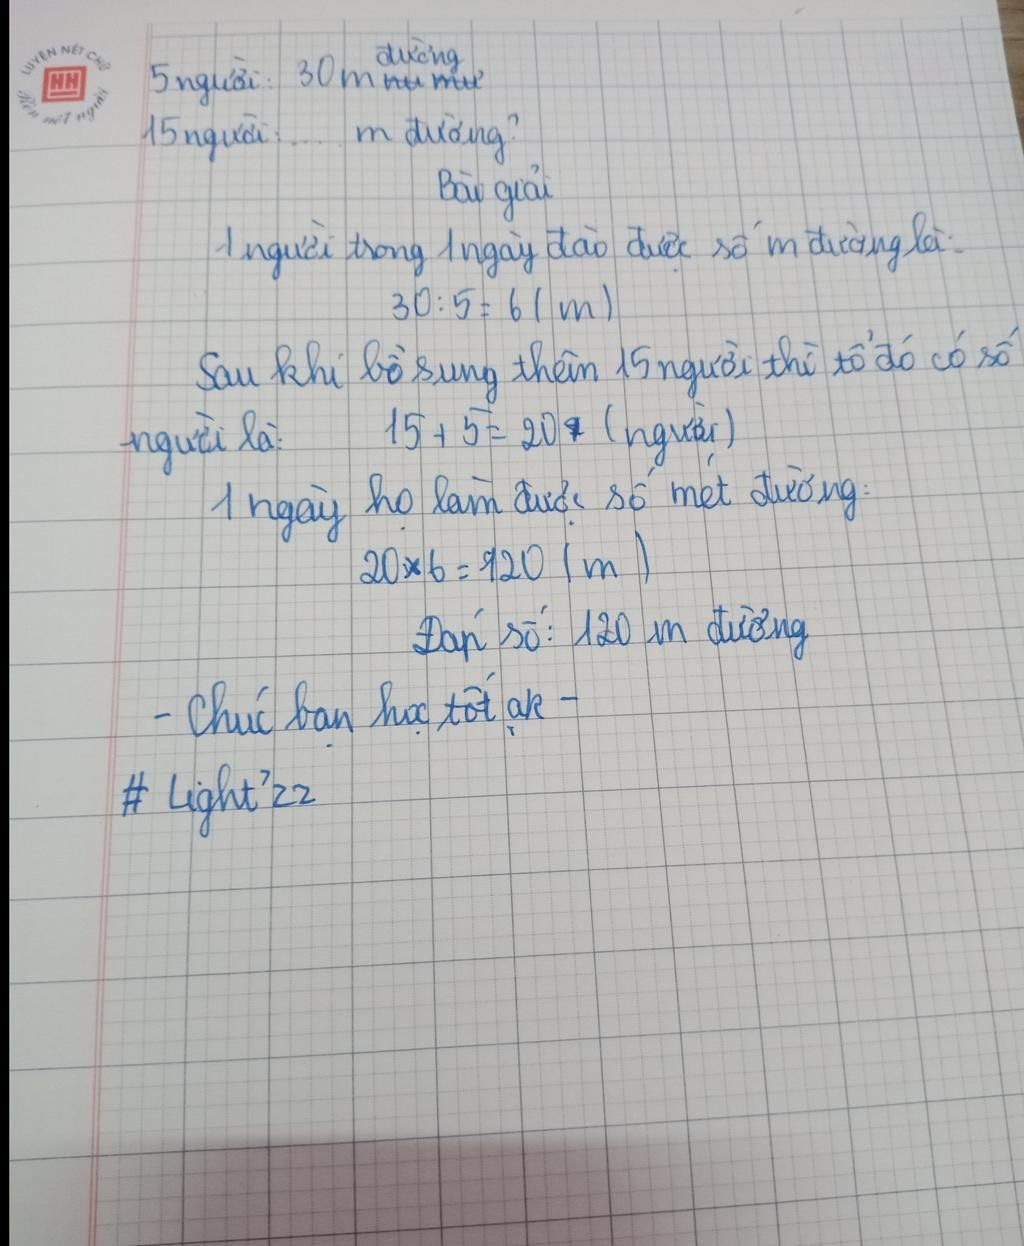 LUYỆN NÉT CHỮ
HH
Rèn nết người
5 người: 30m đường
15 người: .... m đường?
Bài giải
1 người trong 1 ngày đào được số m đường là:
30 : 5 = 6 ( m )
Sau khi bổ sung thêm 15 người thì tổ đó có số
người là: 15 + 5 = 20 (người)
1 ngày họ làm được số mét đường:
20 x 6 = 120 ( m )
Đáp số: 120 m đường
- Chúc bạn học tốt ạk -
# Light'zz